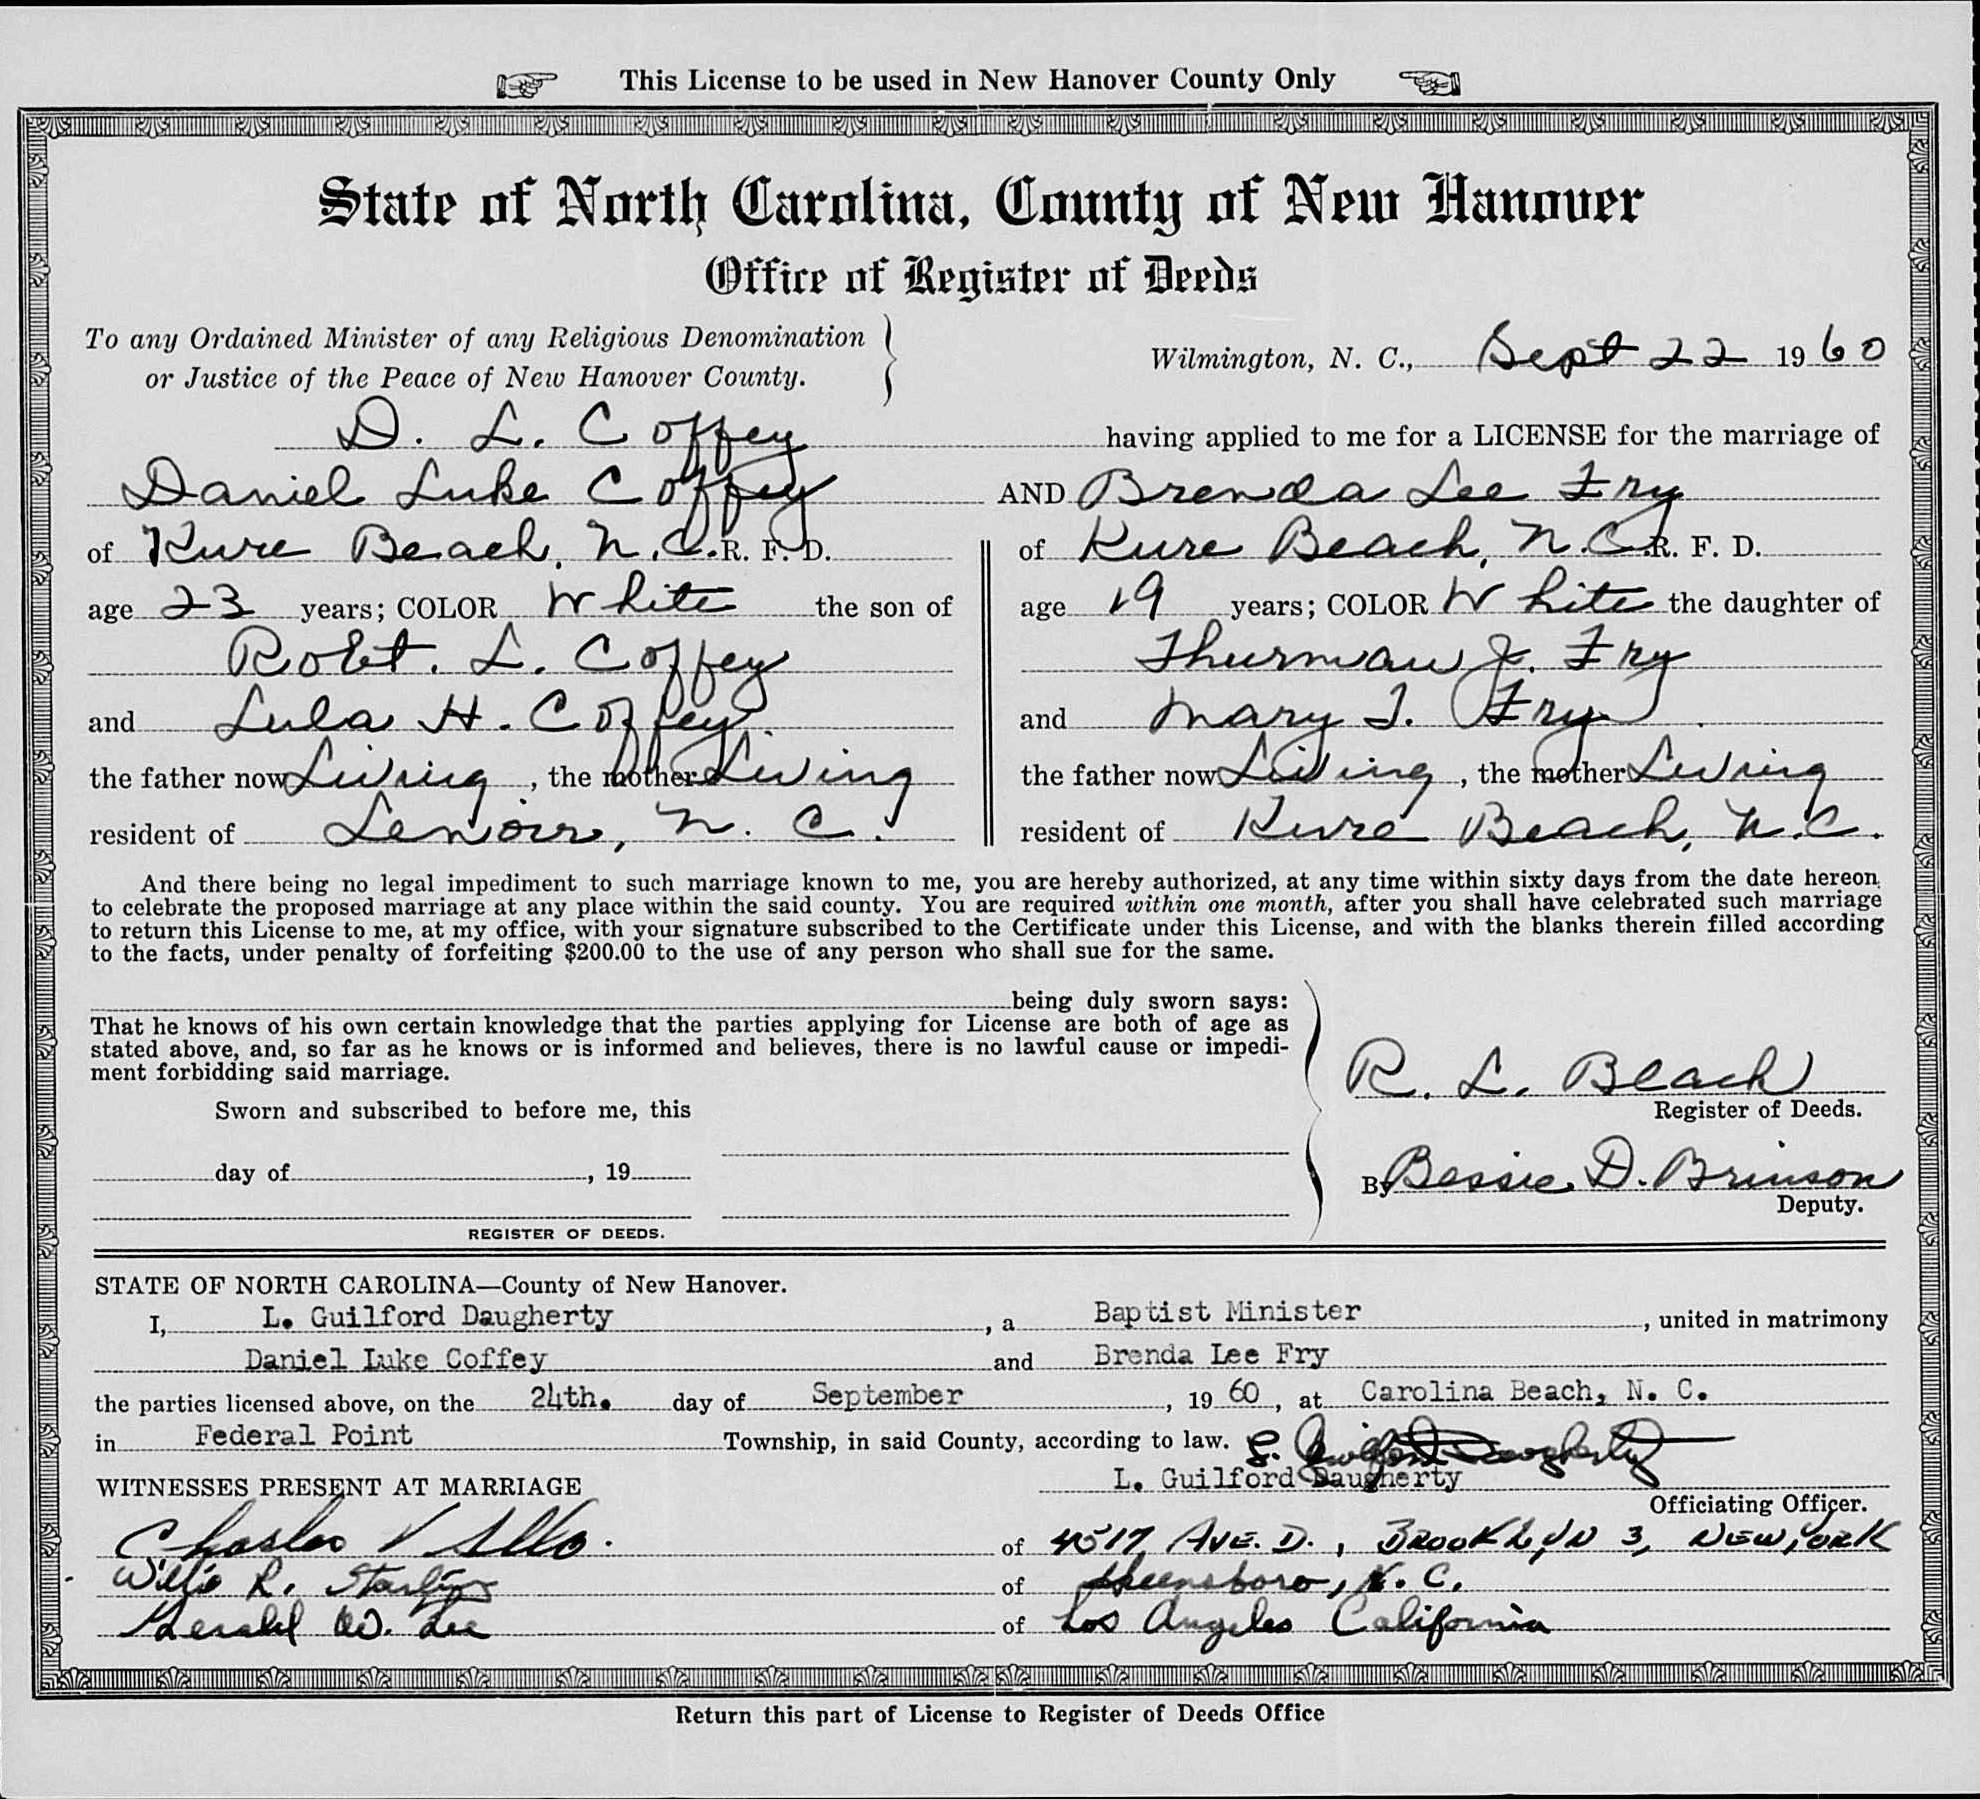 This License to be used in New Hanover County Only
State of North Carolina, County of New Hanover
Office of Register of Deeds
To any Ordained Minister of any Religious Denomination
or Justice of the Peace of New Hanover County.
Wilmington, N. C., Sept 22 1960
D. L. Coffey having applied to me for a LICENSE for the marriage of
Daniel Luke Coffey AND Brenda Lee Fry
of Kure Beach, N.C. R. F. D.
age 23 years; COLOR White the son of
Robt. L. Coffey
and Lula H. Coffey
the father now Living, the mother Living
resident of Lenoir, N. C.
of Kure Beach, N.C. R. F. D.
age 19 years; COLOR White the daughter of
Thurman J. Fry
and Mary I. Fry
the father now Living, the mother Living
resident of Kure Beach, N.C.
And there being no legal impediment to such marriage known to me, you are hereby authorized, at any time within sixty days from the date hereon,
to celebrate the proposed marriage at any place within the said county. You are required within one month, after you shall have celebrated such marriage
to return this License to me, at my office, with your signature subscribed to the Certificate under this License, and with the blanks therein filled according
to the facts, under penalty of forfeiting $200.00 to the use of any person who shall sue for the same.
being duly sworn says:
That he knows of his own certain knowledge that the parties applying for License are both of age as
stated above, and, so far as he knows or is informed and believes, there is no lawful cause or impedi-
ment forbidding said marriage.
Sworn and subscribed to before me, this
day of , 19
REGISTER OF DEEDS.
R. L. Black
Register of Deeds.
By Bessie D. Brinson
Deputy.
STATE OF NORTH CAROLINA—County of New Hanover.
I, L. Guilford Daugherty, a Baptist Minister, united in matrimony
Daniel Luke Coffey and Brenda Lee Fry
the parties licensed above, on the 24th. day of September, 19 60, at Carolina Beach, N. C.
in Federal Point Township, in said County, according to law. L. Guilford Daugherty
WITNESSES PRESENT AT MARRIAGE L. Guilford Daugherty
Officiating Officer.
Charles V of 4517 AVE. D., BROOKLYN 3, NEW YORK
Willie R. Starling of Greensboro, N. C.
Gerald W. Lee of Los Angeles California
Return this part of License to Register of Deeds Office